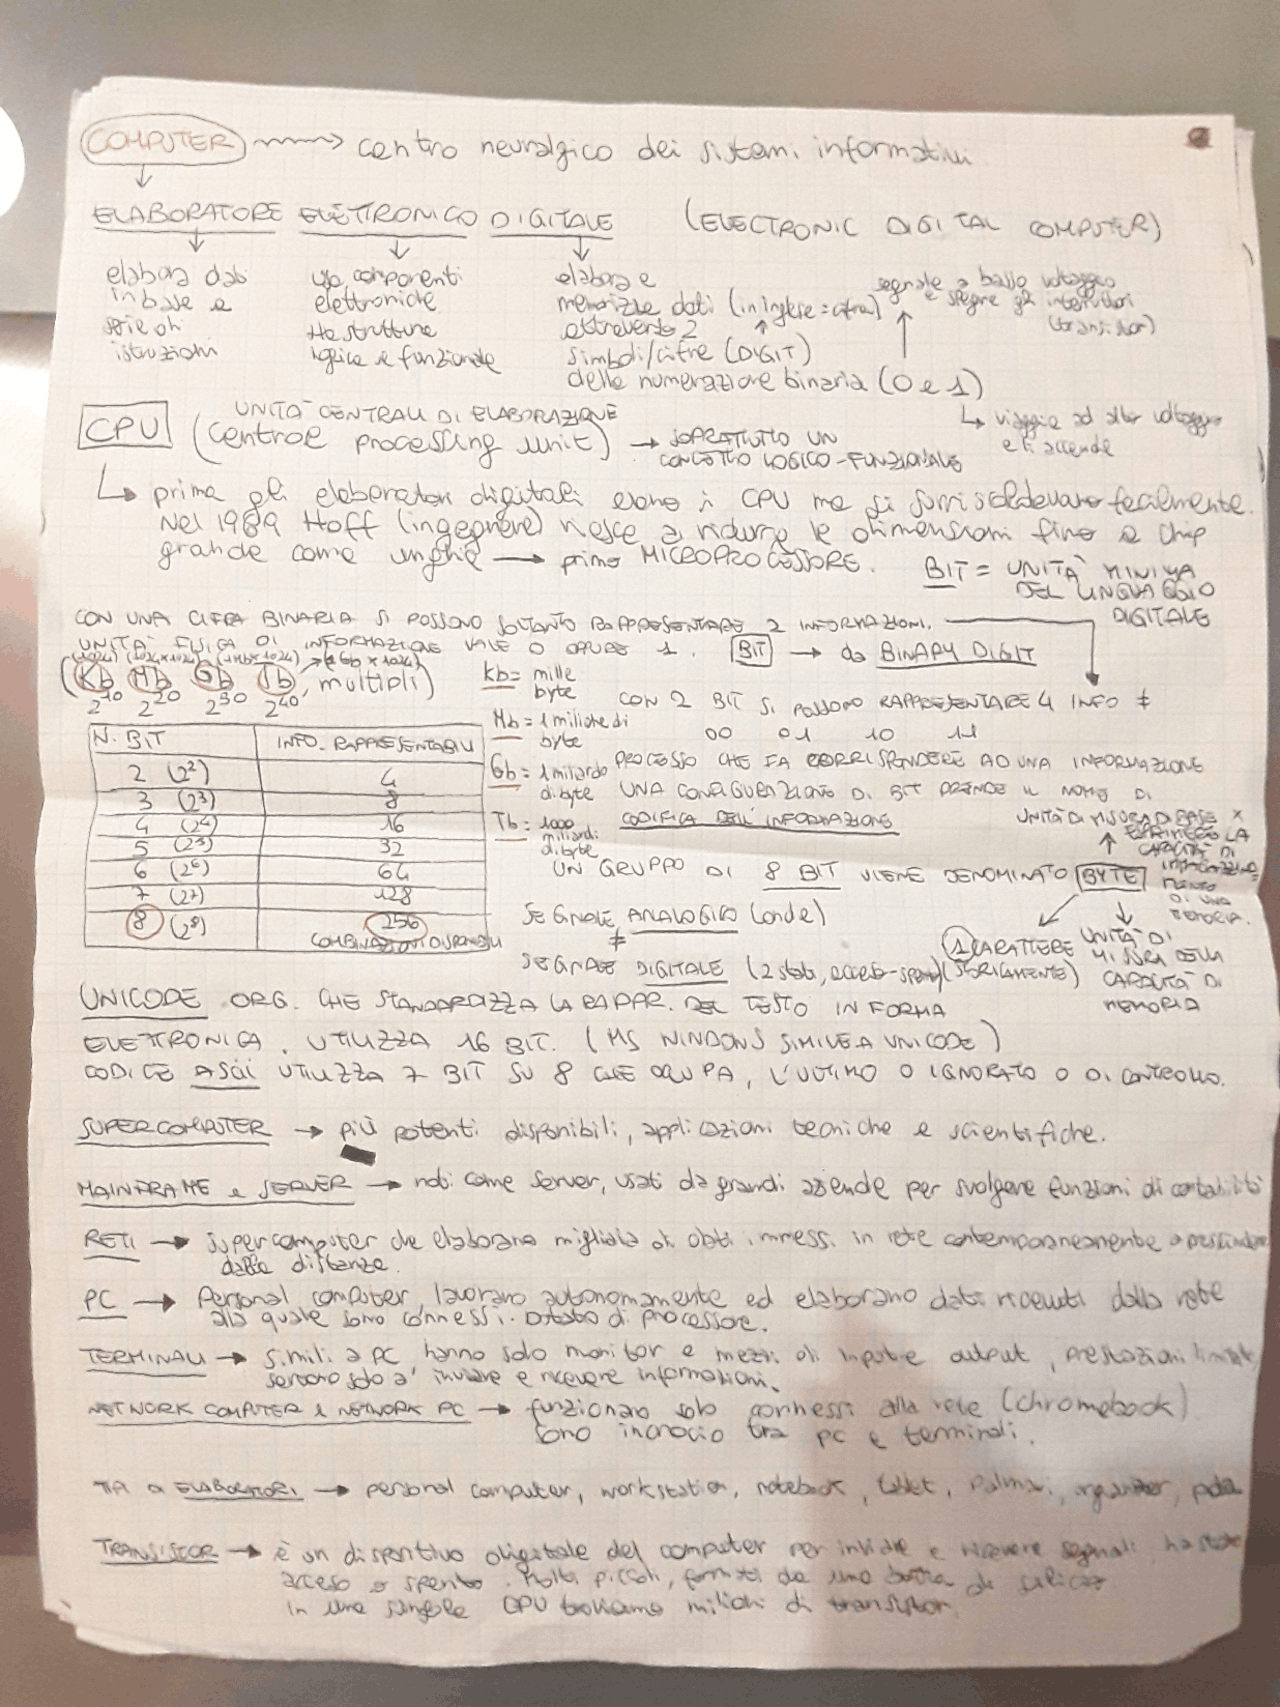 COMPUTER → centro neuralgico dei sistemi informativi
ELABORATORE ELETTRONICO DIGITALE (ELECTRONIC DIGITAL COMPUTER)
elabora dati
in base a
serie di
istruzioni
usa componenti
elettroniche
Ha struttura
logica e funzionale
elabora e
memorizza dati (in inglese = cifra)
attraverso 2
simboli/cifre (DIGIT)
della numerazione binaria (0 e 1)
segnale a basso voltaggio
e spegne gli interruttori
(transistor)
↳ viaggia ad alto voltaggio
e li accende
UNITÀ CENTRALI DI ELABORAZIONE
CPU (Centrae processing unit) → SOPRATTUTTO UN
CONCETTO LOGICO-FUNZIONALE
↳ prima gli elaboratori digitali erano i CPU ma si surriscaldavano facilmente.
Nel 1969 Hoff (ingegnere) riesce a ridurre le dimensioni fino a chip
grande come unghia → primo MICROPROCESSORE.
BIT = UNITÀ MINIMA
DEL LINGUAGGIO
DIGITALE
CON UNA CIFRA BINARIA SI POSSONO SOLTANTO RAPPRESENTARE 2 INFORMAZIONI.
UNITÀ FISICA DI INFORMAZIONE VALE 0 OPPURE 1. BIT → da BINARY DIGIT
(1024) (1024x1024) (1Mbx1024) (1Gbx1024)
(Kb Mb Gb Tb, multipli)
2^10 2^20 2^30 2^40
Kb = mille
byte
Mb = 1 milione di
byte
Gb = 1 miliardo
di byte
Tb = 1000
miliardi
di byte
CON 2 BIT SI POSSONO RAPPRESENTARE 4 INFO ≠
00 01 10 11
N. BIT INFO. RAPPRESENTABILI
2 (2^2) 4
3 (2^3) 8
4 (2^4) 16
5 (2^5) 32
6 (2^6) 64
7 (2^7) 128
8 (2^8) 256
COMBINAZIONI DISPONIBILI
PROCESSO CHE FA CORRISPONDERE AD UNA INFORMAZIONE
UNA CONFIGURAZIONE DI BIT PRENDE IL NOME DI
CODIFICA DELL'INFORMAZIONE
UN GRUPPO DI 8 BIT VIENE DENOMINATO BYTE
UNITÀ DI MISURA DI BASE X
ESPRIMERE LA
CAPACITÀ DI
IMMAGAZZINA-
MENTO
DI UNA
MEMORIA.
1 CARATTERE
(STORICAMENTE)
UNITÀ DI
MISURA DELLA
CAPACITÀ DI
MEMORIA
SEGNALE ANALOGICO (onde)
≠
SEGNALE DIGITALE (2 stati, acceso-spento)
UNICODE ORG. CHE STANDARDIZZA LA RAPPR. DEL TESTO IN FORMA
ELETTRONICA. UTILIZZA 16 BIT. (MS WINDOWS SIMILE A UNICODE)
CODICE ASCII UTILIZZA 7 BIT SU 8 CHE OCCUPA, L'ULTIMO O IGNORATO O DI CONTROLLO.
SUPERCOMPUTER → più potenti disponibili, applicazioni tecniche e scientifiche.
MAINFRAME e SERVER → noti come server, usati da grandi aziende per svolgere funzioni di contabilità
RETI → supercomputer che elaborano migliaia di dati immessi in rete contemporaneamente a prescindere
dalla distanza.
PC → Personal computer, lavorano autonomamente ed elaborano dati ricevuti dalla rete
alla quale sono connessi. Dotato di processore.
TERMINALI → simili a PC, hanno solo monitor e mezzi di input e output, prestazioni limitate
servono solo a' inviare e ricevere informazioni.
NETWORK COMPUTER e NETWORK PC → funzionano solo connessi alla rete (chromebook)
sono incrocio tra pc e terminali.
TIPI DI ELABORATORI → personal computer, workstation, notebook, tablet, palmari, organizer, pda
TRANSISTOR → è un dispositivo digitale del computer per inviare e ricevere segnali, ha stato
acceso o spento. Molto piccoli, formati da una di silicio
In una singola CPU troviamo milioni di transistor.